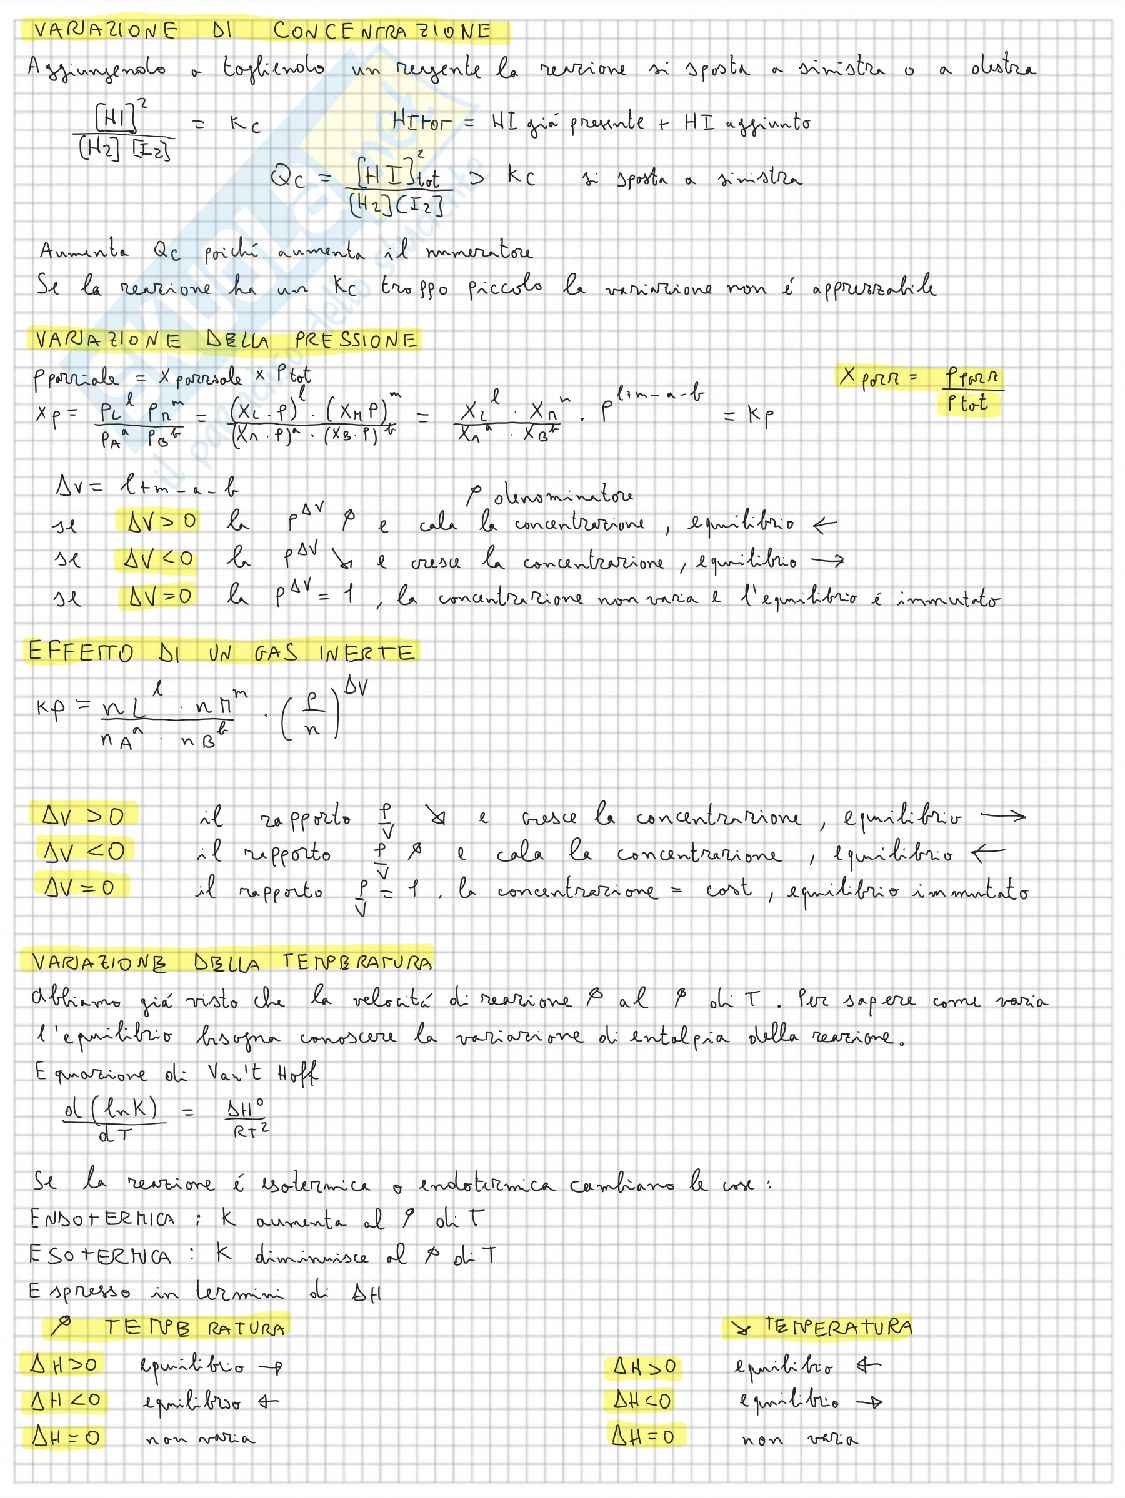 VARIAZIONE DI CONCENTRAZIONE
Aggiungendo o togliendo un reagente la reazione si sposta a sinistra o a destra
[HI]² / [H2] [I2] = Kc HI TOT = HI già presente + HI aggiunto
Qc = [HI]²tot / [H2][I2] > Kc si sposta a sinistra
Aumenta Qc poiché aumenta il numeratore
Se la reazione ha un Kc troppo piccolo la variazione non é apprezzabile
VARIAZIONE DELLA PRESSIONE
Pparziale = Xparziale × Ptot X parz = Pparz / Ptot
Xp = PL^l PM^m / PA^a PB^b = (XL·P)^l · (XM P)^m / (XA·P)^a · (XB·P)^b = XL^l · XM^m / XA^a · XB^b · P^l+m-a-b = Kp
ΔV = l+m-a-b
↗ denominatore
se ΔV>0 la P^ΔV ↗ e cala la concentrazione, equilibrio ←
se ΔV<0 la P^ΔV ↘ e cresce la concentrazione, equilibrio →
se ΔV=0 la P^ΔV = 1, la concentrazione non varia e l'equilibrio é immutato
EFFETTO DI UN GAS INERTE
Kp = nL^l · nM^m / nA^a · nB^b · (P/n)^ΔV
ΔV >0 il rapporto P/V ↘ e cresce la concentrazione, equilibrio →
ΔV <0 il rapporto P/V ↗ e cala la concentrazione, equilibrio ←
ΔV = 0 il rapporto P/V = 1, la concentrazione = cost, equilibrio immutato
VARIAZIONE DELLA TEMPERATURA
Abbiamo giá visto che la velocitá di reazione ↗ al ↗ di T. Per sapere come varia
l'equilibrio bisogna conoscere la variazione di entalpia della reazione.
Equazione di Van't Hoff
d(lnK) / dT = ΔH° / RT²
Se la reazione é esotermica o endotermica cambiano le cose:
ENDOTERMICA: K aumenta al ↗ di T
ESOTERMICA: K diminuisce al ↗ di T
Espresso in termini di ΔH
↗ TEMPERATURA ↘ TEMPERATURA
ΔH>0 equilibrio → ΔH>0 equilibrio ←
ΔH<0 equilibrio ← ΔH<0 equilibrio →
ΔH=0 non varia ΔH=0 non varia